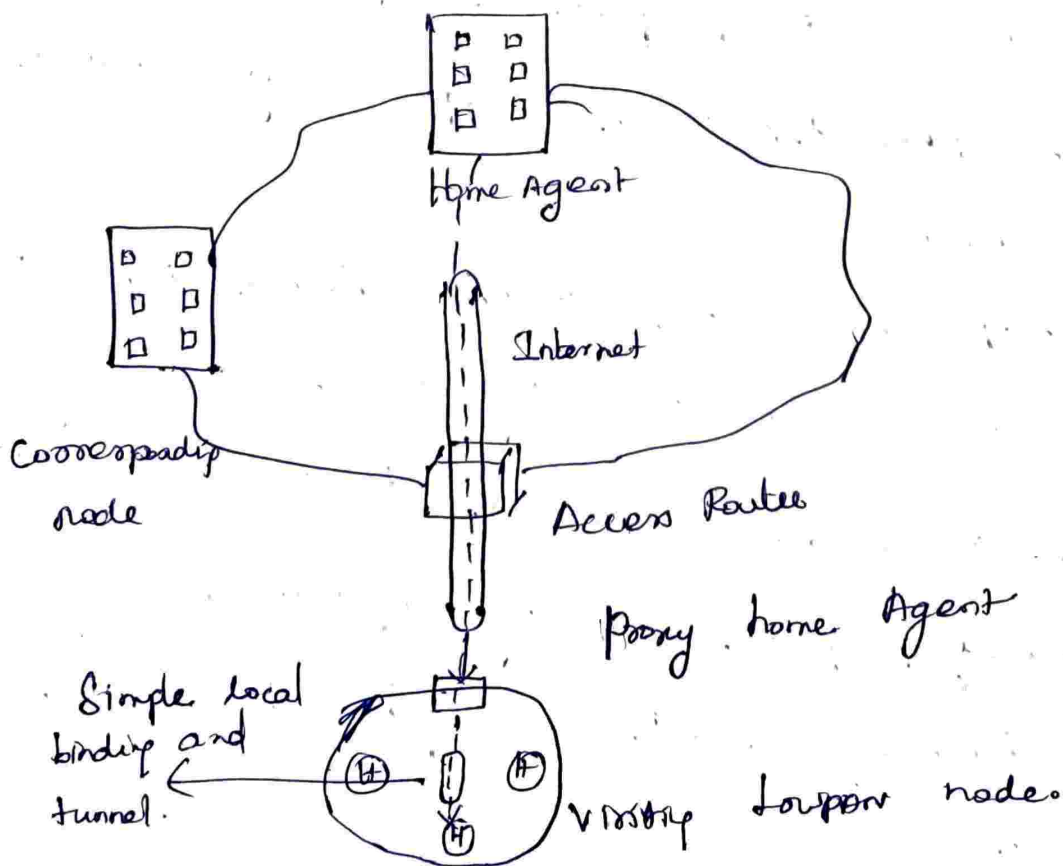 Home Agent
Internet
Corresponding
node
Access Router
Proxy home Agent
Simple local
binding and
tunnel.
H
H
H
Visiting node.